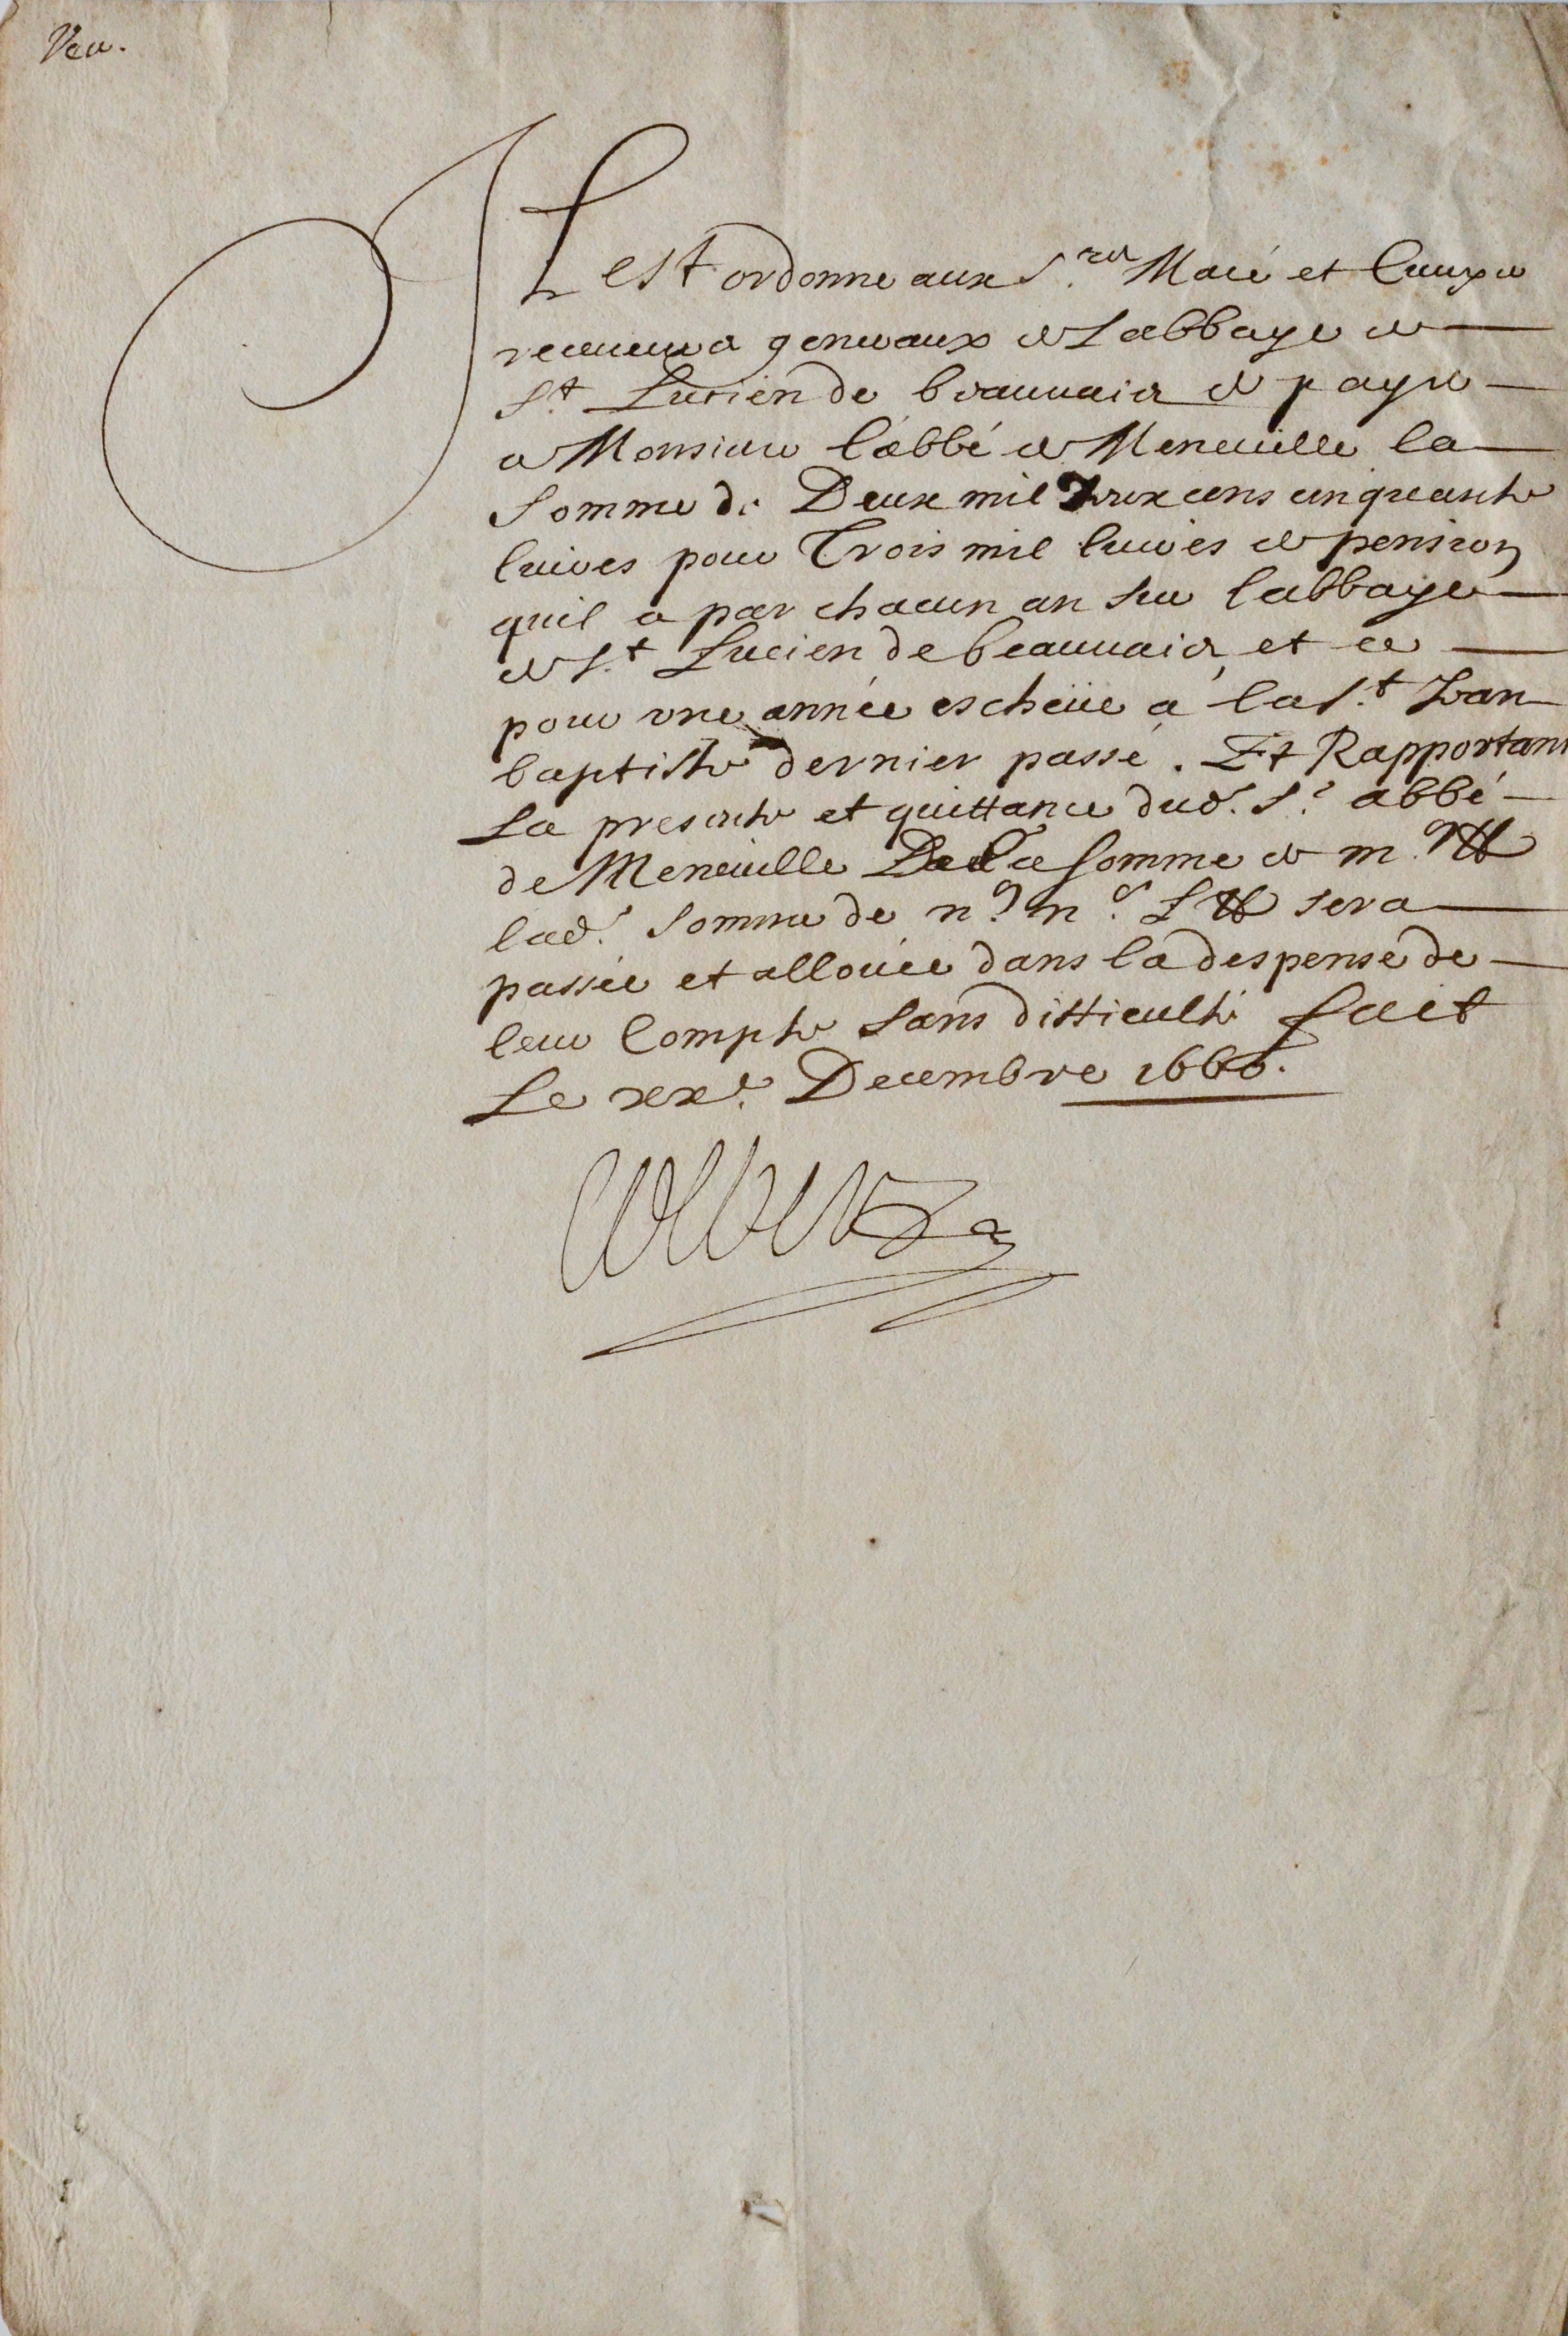 Veu.
Il est ordonne aux S.rs Macé et
receveurs generaux de Labbaye de
S.t Lucien de beauvais de payer
a Monsieur l'abbé de Meneville la
Somme de Deux mil deux cens cinquante
livres pour Trois mil livres de pension
quil a par chacun an sur labbaye
de S.t Lucien de beauvais et ce
pour une année escheüe a la S.t Jean
baptiste dernier passé. Et Rapportant
La presente et quittance dud. S.r abbé
de Meneville De la somme de
lad. somme de sera
passée et allouée dans la despense de
leur Compte sans difficulté fait
Le xx.e Decembre 1666.
Colbert